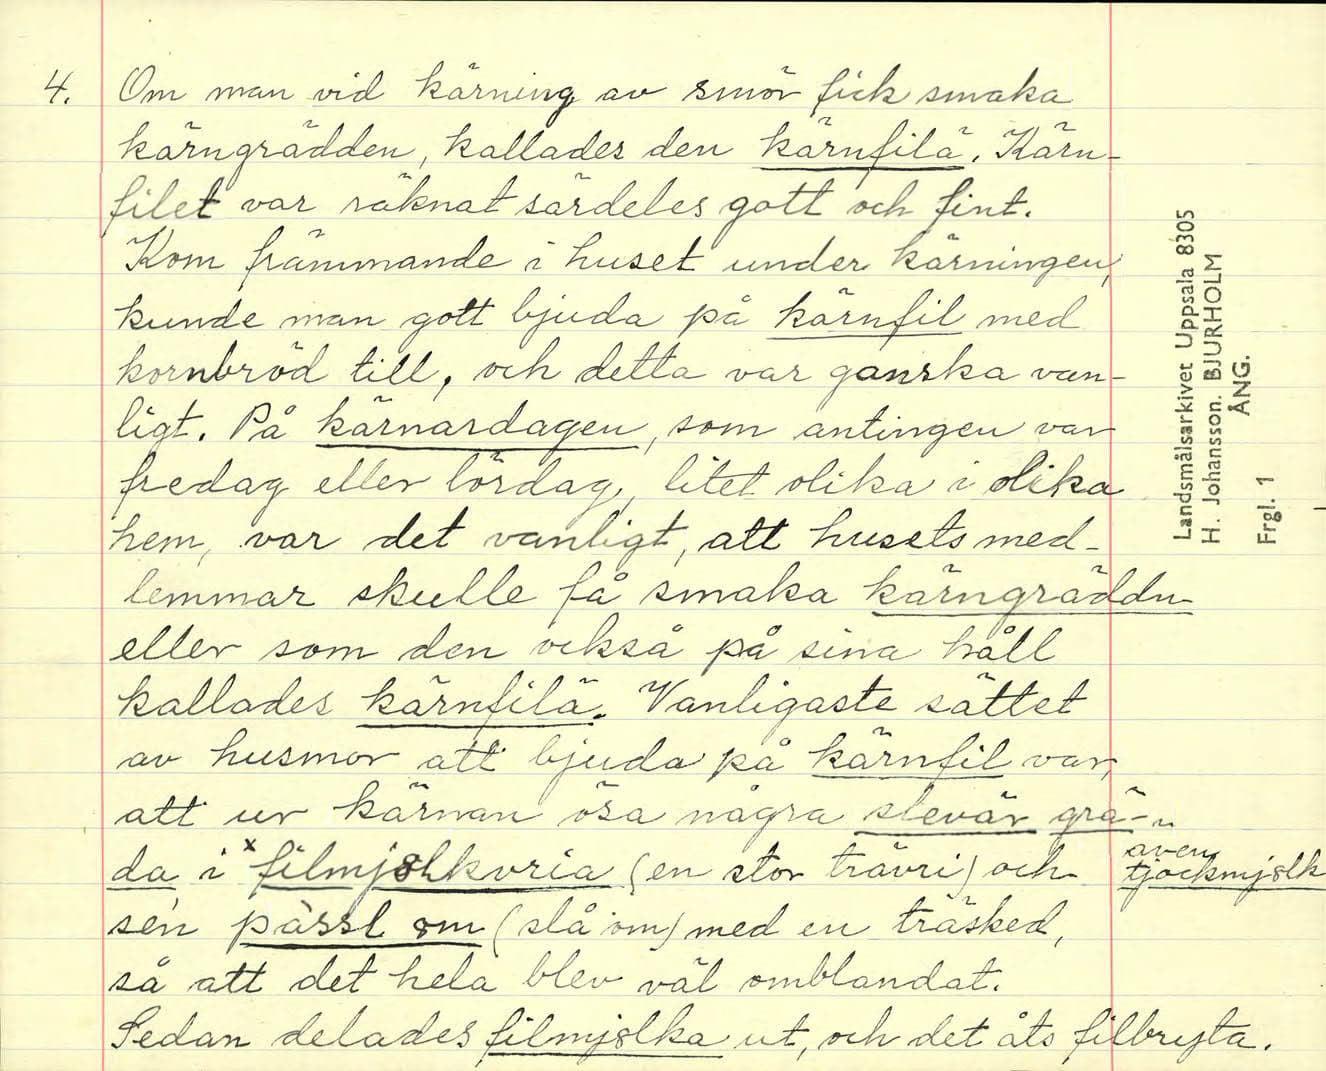 4. Om man vid kärning av smör fick smaka
kärngrädden, kallades den kärnfilä. Kärn-
filet var räknat särdeles gott och fint.
Kom främmande i huset under kärningen,
kunde man gott bjuda på kärnfil med
kornbröd till, och detta var ganska van-
ligt. På kärnardagen, som antingen var
fredag eller lördag, litet olika i olika
hem, var det vanligt, att husets med-
lemmar skulle få smaka kärngräddn
eller som den också på sina håll
kallades kärnfilä. Vanligaste sättet
av husmor att bjuda på kärnfil var,
att ur kärnan ösa några slevär grä-
da i x filmjölkvria (en stor trävri) och
även
tjockmjölk
sen pässl om (slå om) med en träsked,
så att det hela blev väl omblandat.
Sedan delades filmjölka ut, och det åts filbryta.
Landsmålsarkivet Uppsala 8305
H. Johansson. BJURHOLM
ÅNG.
Frgl. 1